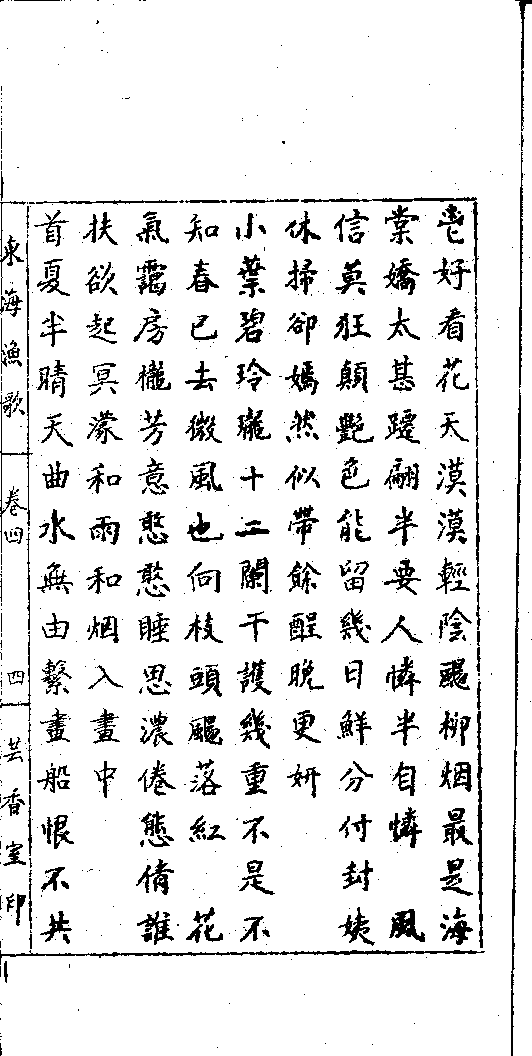 好看花天漠漠輕陰颺柳烟最是海
棠嬌太甚蹮翩半要人憐半自憐　風
信莫狂顛艷色能留幾日鮮分付封姨
休掃卻嫣然似帶餘酲晚更妍
小葉碧玲瓏十二闌干護幾重不是不
知春已去微風也向枝頭颺落紅　花
氣靄房櫳芳意憨憨睡思濃倦態倩誰
扶欲起冥濛和雨和烟入畫中
首夏半晴天曲水無由繫畫船恨不共
東海漁歌　卷四　四　芸香室印